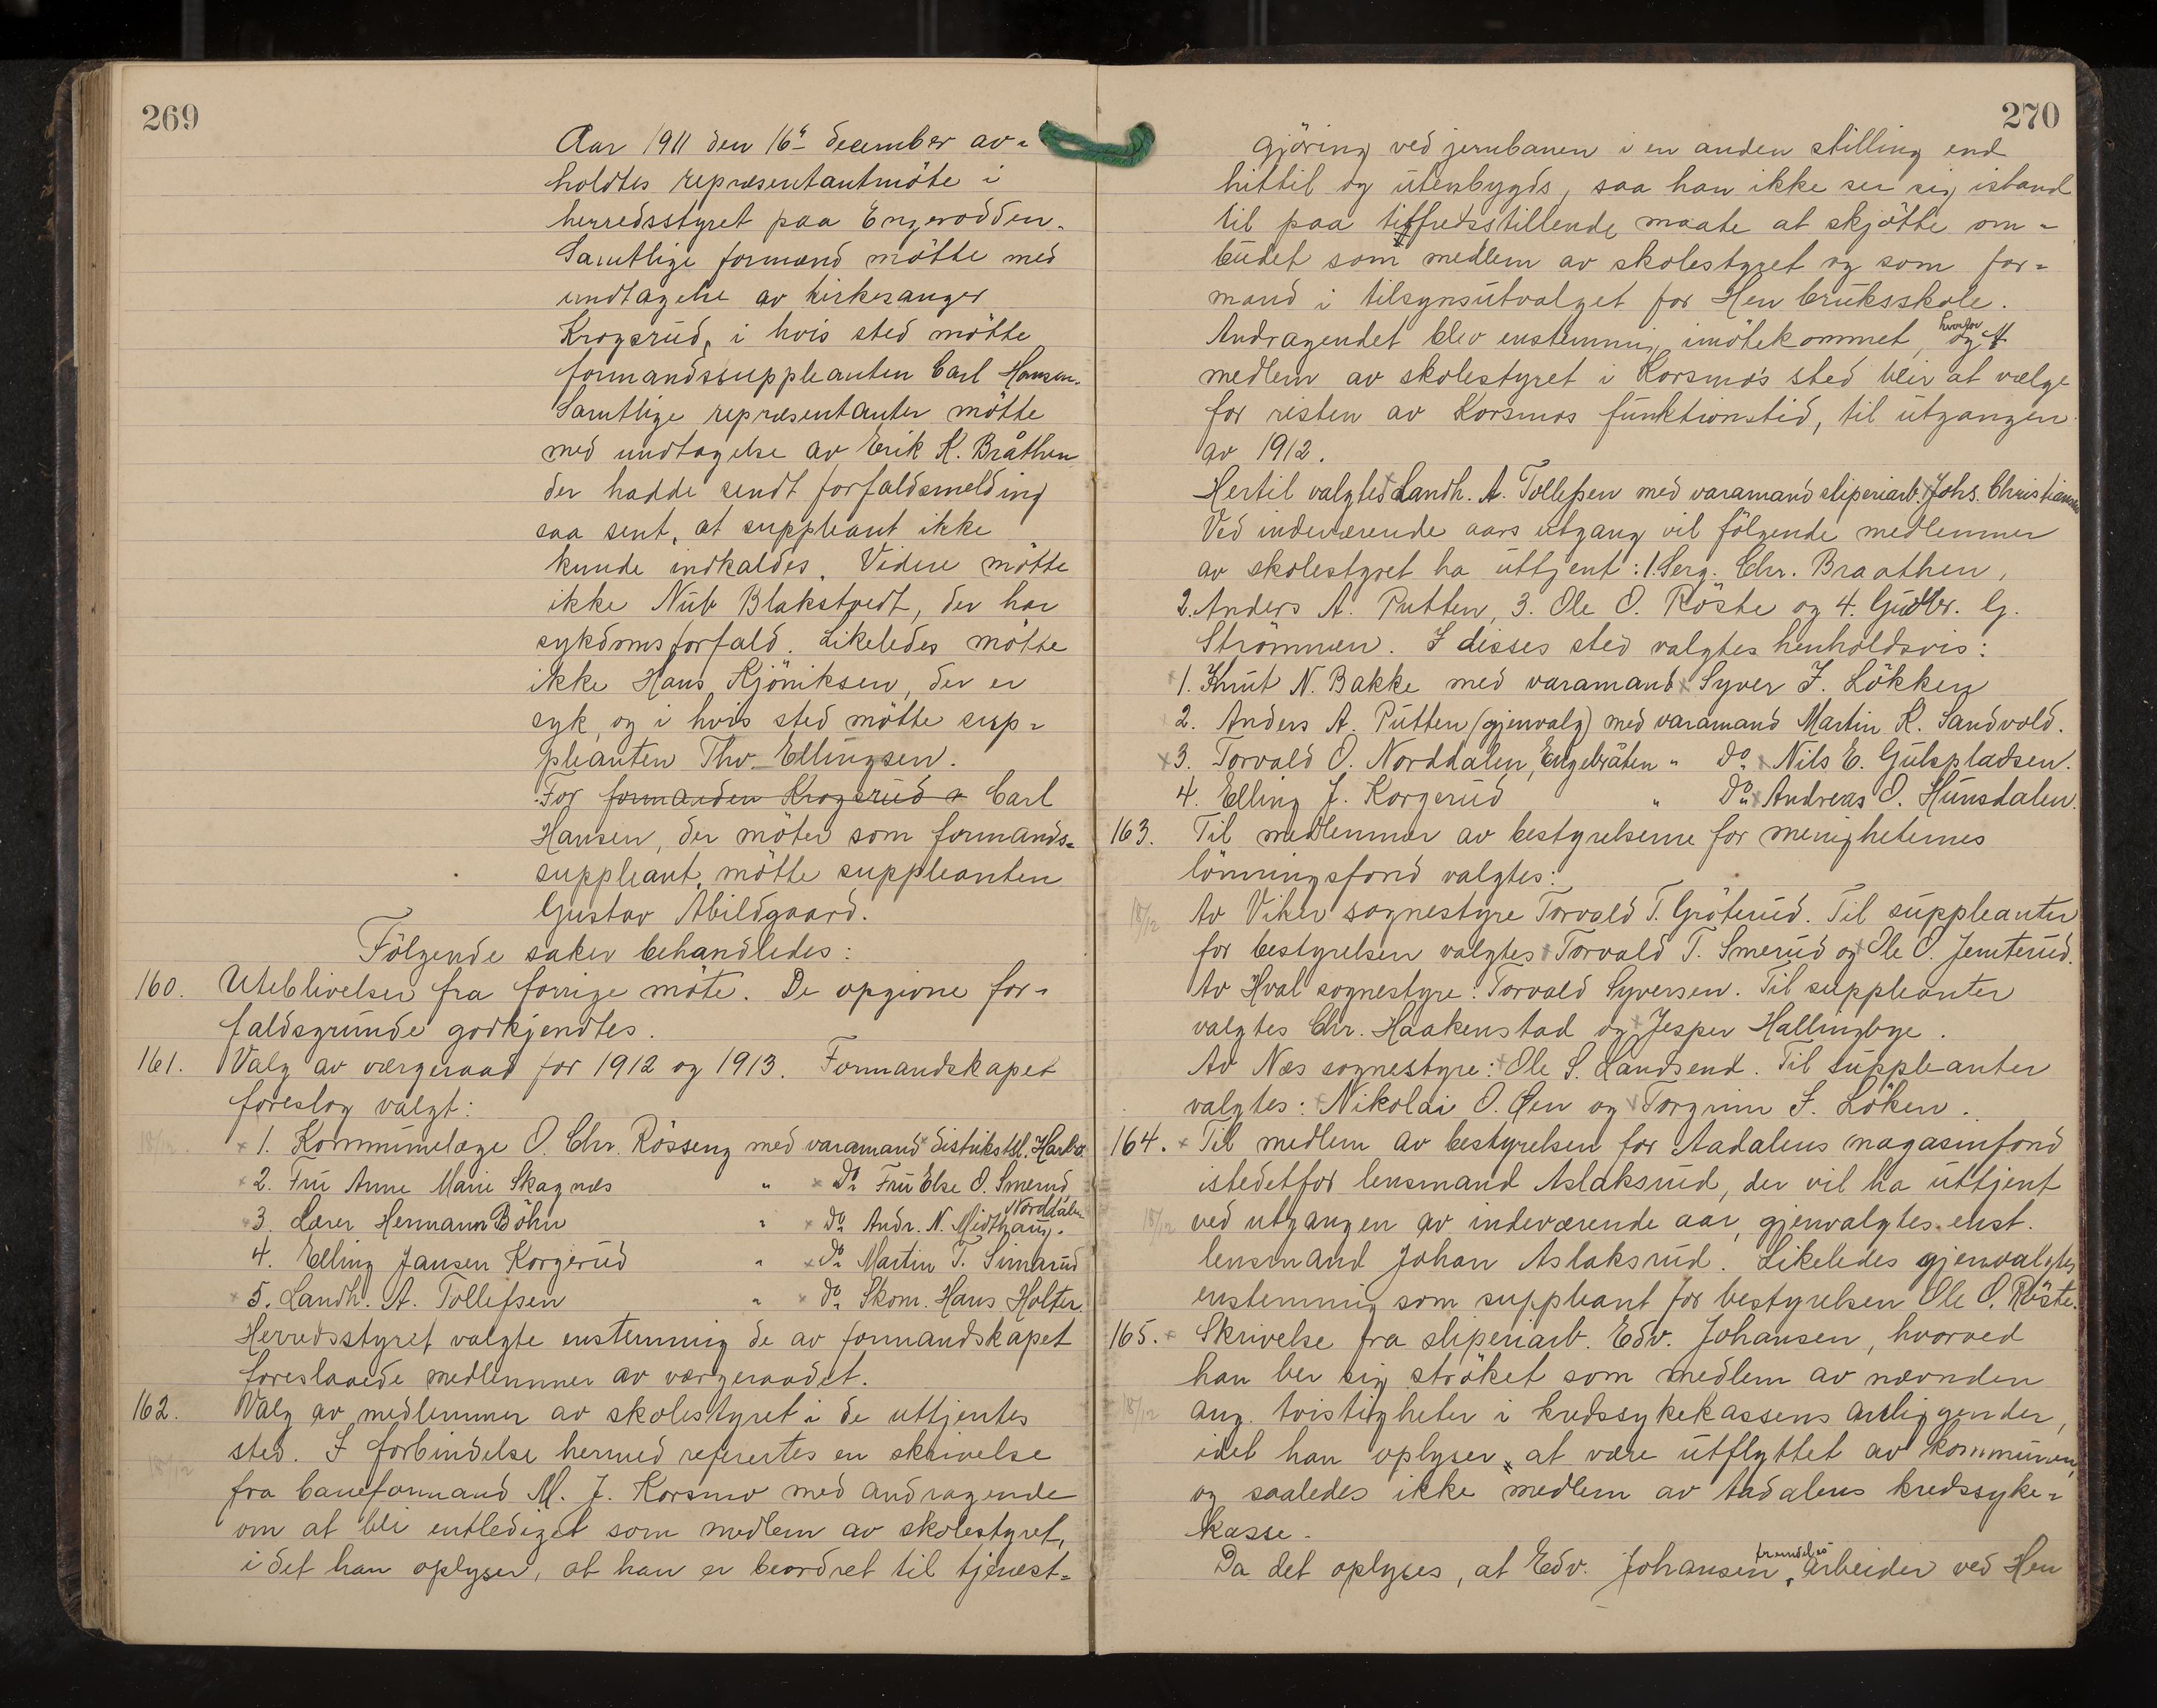 269
Aar 1911 den 16de december av-
holdtes repræsentantmöte i
herredsstyret paa Engerodden.
Samtlige formænd mötte med
undtagelse av kirkesanger
Krogsrud, i hvis sted mötte
formandssuppleanten Carl Hansen.
Samtlige repræsentanter mötte
med undtagelse av Erik K. Bråthen
der hadde sendt forfaldsmelding
saa sent, at suppleant ikke
kunde indkaldes. Videre mötte
ikke Nub Blakstvedt, der har
sykdomsforfald. Likeledes mötte
ikke Hans Kjöniksen, der er
syk, og i hvis sted mötte sup-
pleanten Thv. Ellingsen.
For formanden Krogsrud Carl
Hansen, der möter som formands-
suppleant, mötte suppleanten
Gustav Abildgaard.
Fölgende saker behandledes:
160. Uteblivelser fra forrige möte. De opgivne for-
faldsgrunde godkjendtes.
161. Valg av værgeraad for 1912 og 1913. Formandskapet
foreslog valgt:
18/12 × 1. Kommunelæge O. Chr. Rösseng med varamand × distriktsl. Harbo
× 2. Fru Anne Marie Skagnæs " × Do. Fru Else O. Smerud
Norddalen
× 3. Lærer Hermann Böhn " × Do. Andr. N. Midthaug.
4. Elling Jansen Korgerud " × Do. Martin T. Simarud
× 5. Landh. A. Tollefsen " × Do. Skom. Hans Holter.
Herredsstyret valgte enstemmig de av formandskapet
foreslaaede medlemmer av værgeraadet.
162. Valg av medlemmer av skolestyret i de uttjentes
18/12 sted. I forbindelse hermed refertes en skrivelse
fra baneformand M. J. Korsmo med andragende
om at bli entlediget som medlem av skolestyret,
idet han oplyser, at han er beordret til tjenest-
270
gjöring ved jernbanen i en anden stilling end
hittil og utenbygds, saa han ikke ser sig istand
til paa tilfredsstillende maate at skjötte om-
budet som medlem av skolestyret og som for-
mand i tilsynsutvalget for Hen bruksskole.
hvorfor
Andragendet blev enstemmig imötekommet, og et
medlem av skolestyret i Korsmo's sted blir at vælge
for resten av Korsmos funktionstid, til utgangen
av 1912.
Hertil valgtes × Landh. A. Tollefsen med varamand sliperiarb. × Johs. Christiansen
Ved indeværende aars utgang vil fölgende medlemmer
av skolestyret ha uttjent: 1. Serg. Chr. Braathen,
2. Anders A. Putten, 3. Ole O. Röste og 4. Gudbr. G.
Strömmen. I disses sted valgtes henholdsvis:
× 1. Knut N. Bakke med varamand × Syver J. Lökken
2. Anders A. Putten (gjenvalg) med varamand Martin K. Sandvold.
× 3. Torvald O. Norddalen, Engebråten " Do. × Nils E. Gulspladsen.
4. Elling J. Korgerud " Do. × Andreas O. Hunsdalen.
163. Til medlemmer av bestyrelserne for menigheternes
lönningsfond valgtes:
18/12 Av Viker sognestyre Torvald T. Gröterud. Til suppleanter
for bestyrelsen valgtes × Torvald T. Smerud og × Ole O. Jemterud.
Av Hval sognestyre: Torvald Syversen. Til suppleanter
valgtes Chr. Haakenstad og × Jesper Hallingbye.
Av Næs sognestyre: × Ole S. Landsend. Til suppleanter
valgtes: × Nikolai O. Øen og × Torgrim J. Löken.
164. × Til medlem av bestyrelsen for Aadalens magasinfond
istedetfor lensmand Aslaksrud, der vil ha uttjent
18/12 ved utgangen av indeværende aar, gjenvalgtes enst.
lensmand Johan Aslaksrud. Likeledes gjenvalgtes
enstemmig som suppleant for bestyrelsen Ole O. Röste.
165. × Skrivelse fra sliperiarb. Edv. Johansen, hvorved
han ber sig ströket som medlem av nævnden
18/12 ang. tvistigheter i kredssykekassens anliggender,
idet han oplyser, at være utflyttet av kommunen,
og saaledes ikke medlem av Aadalens kredssyke-
kasse.
fremdeles
Da det oplyses, at Edv. Johansen arbeider ved Hen